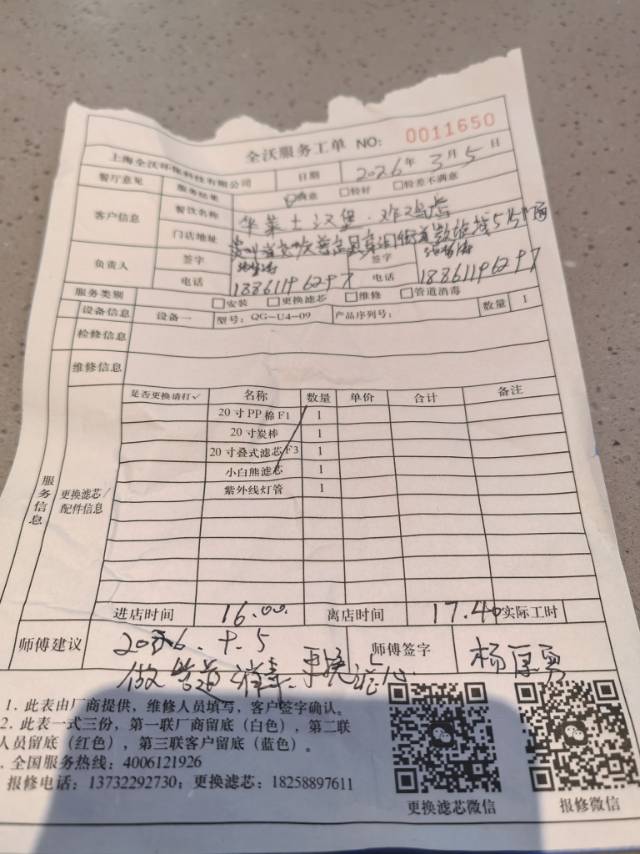 全沃服务工单 NO: 0011650
上海全沃环保科技有限公司 日期 2026年3月5日
餐厅意见 服务结果 满意 较好 较差不满意
客户信息 餐饮名称 华莱士汉堡·炸鸡店
门店地址 贵州省
负责人 签字 签字
电话 18861196297 电话 18861196297
服务类别 安装 更换滤芯 维修 管道消毒
设备信息 设备一 型号: QG-U4-09 产品序列号: 数量 1
检修信息
维修信息
服务信息 更换滤芯/配件信息
是否更换请打✓ 名称 数量 单价 合计 备注
20寸PP棉F1 1
20寸炭棒 1
20寸叠式滤芯F3 1
小白熊滤芯 1
紫外线灯管 1
进店时间 16.00. 离店时间 17.40 实际工时
师傅建议 师傅签字 杨厚勇
做管道 更换滤芯
1. 此表由厂商提供，维修人员填写，客户签字确认。
2. 此表一式三份，第一联厂商留底（白色），第二联
人员留底（红色），第三联客户留底（蓝色）。
. 全国服务热线: 4006121926
报修电话: 13732292730; 更换滤芯: 18258897611
更换滤芯微信 报修微信